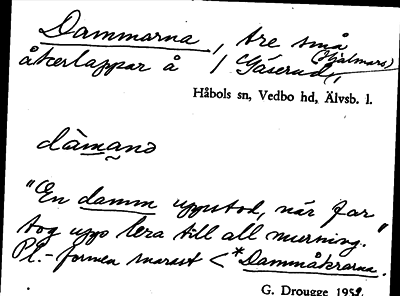 Dammarna, tre små
(Hjälmars)
åkerlappar å 1 Gäserud,
Håbols sn, Vedbo hd, Älvsb. l.
dàmanɔ
"En damm uppstod, när far
tog upp lera till all murning."
Pl.-formen snarast < *Dammåkrarna.
G. Drougge 1959.